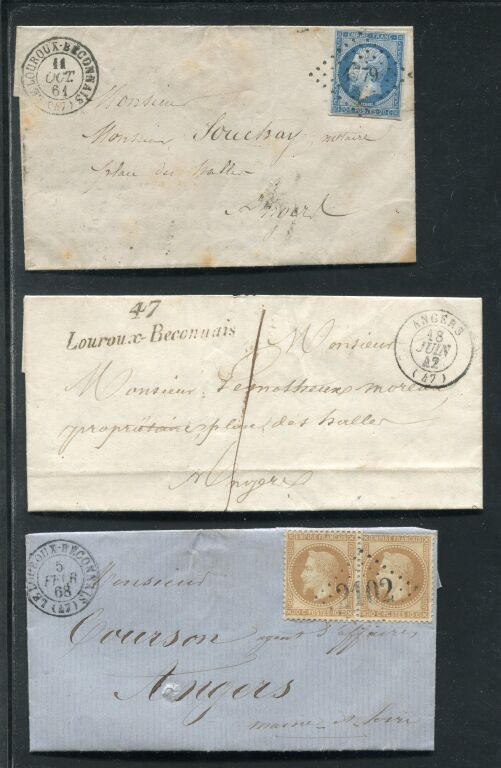 LE LOUROUX-BECONNAIS
11
OCT.
61
(47)
EMPIRE FRANC
20 C. POSTES 20 C.
Monsieur
Monsieur Souchay notaire
place des halles
47
Louroux-Beconnais
ANGERS
18
JUIN
42
(47)
1
Monsieur
Monsieur
propriétaire place des halles
Angers
LE LOUROUX-BECONNAIS
5
FEVR
68
(47)
EMPIRE FRANCAIS EMPIRE FRANCAIS
2102
Monsieur
Courson agent d'affaires
Angers
maine & Loire